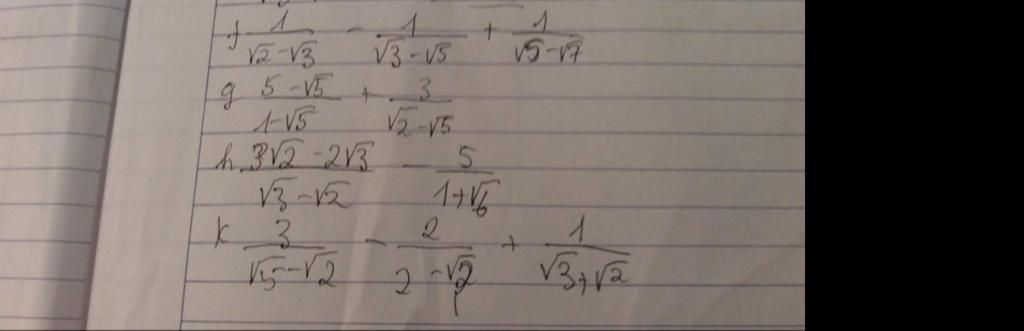 f 1/(√2-√3) - 1/(√3-√5) + 1/(√5-√7)
g (5-√5)/(1-√5) + 3/(√2-√5)
h. (3√2-2√3)/(√3-√2) - 5/(1+√6)
k 3/(√5-√2) - 2/(2-√2) + 1/(√3+√2)